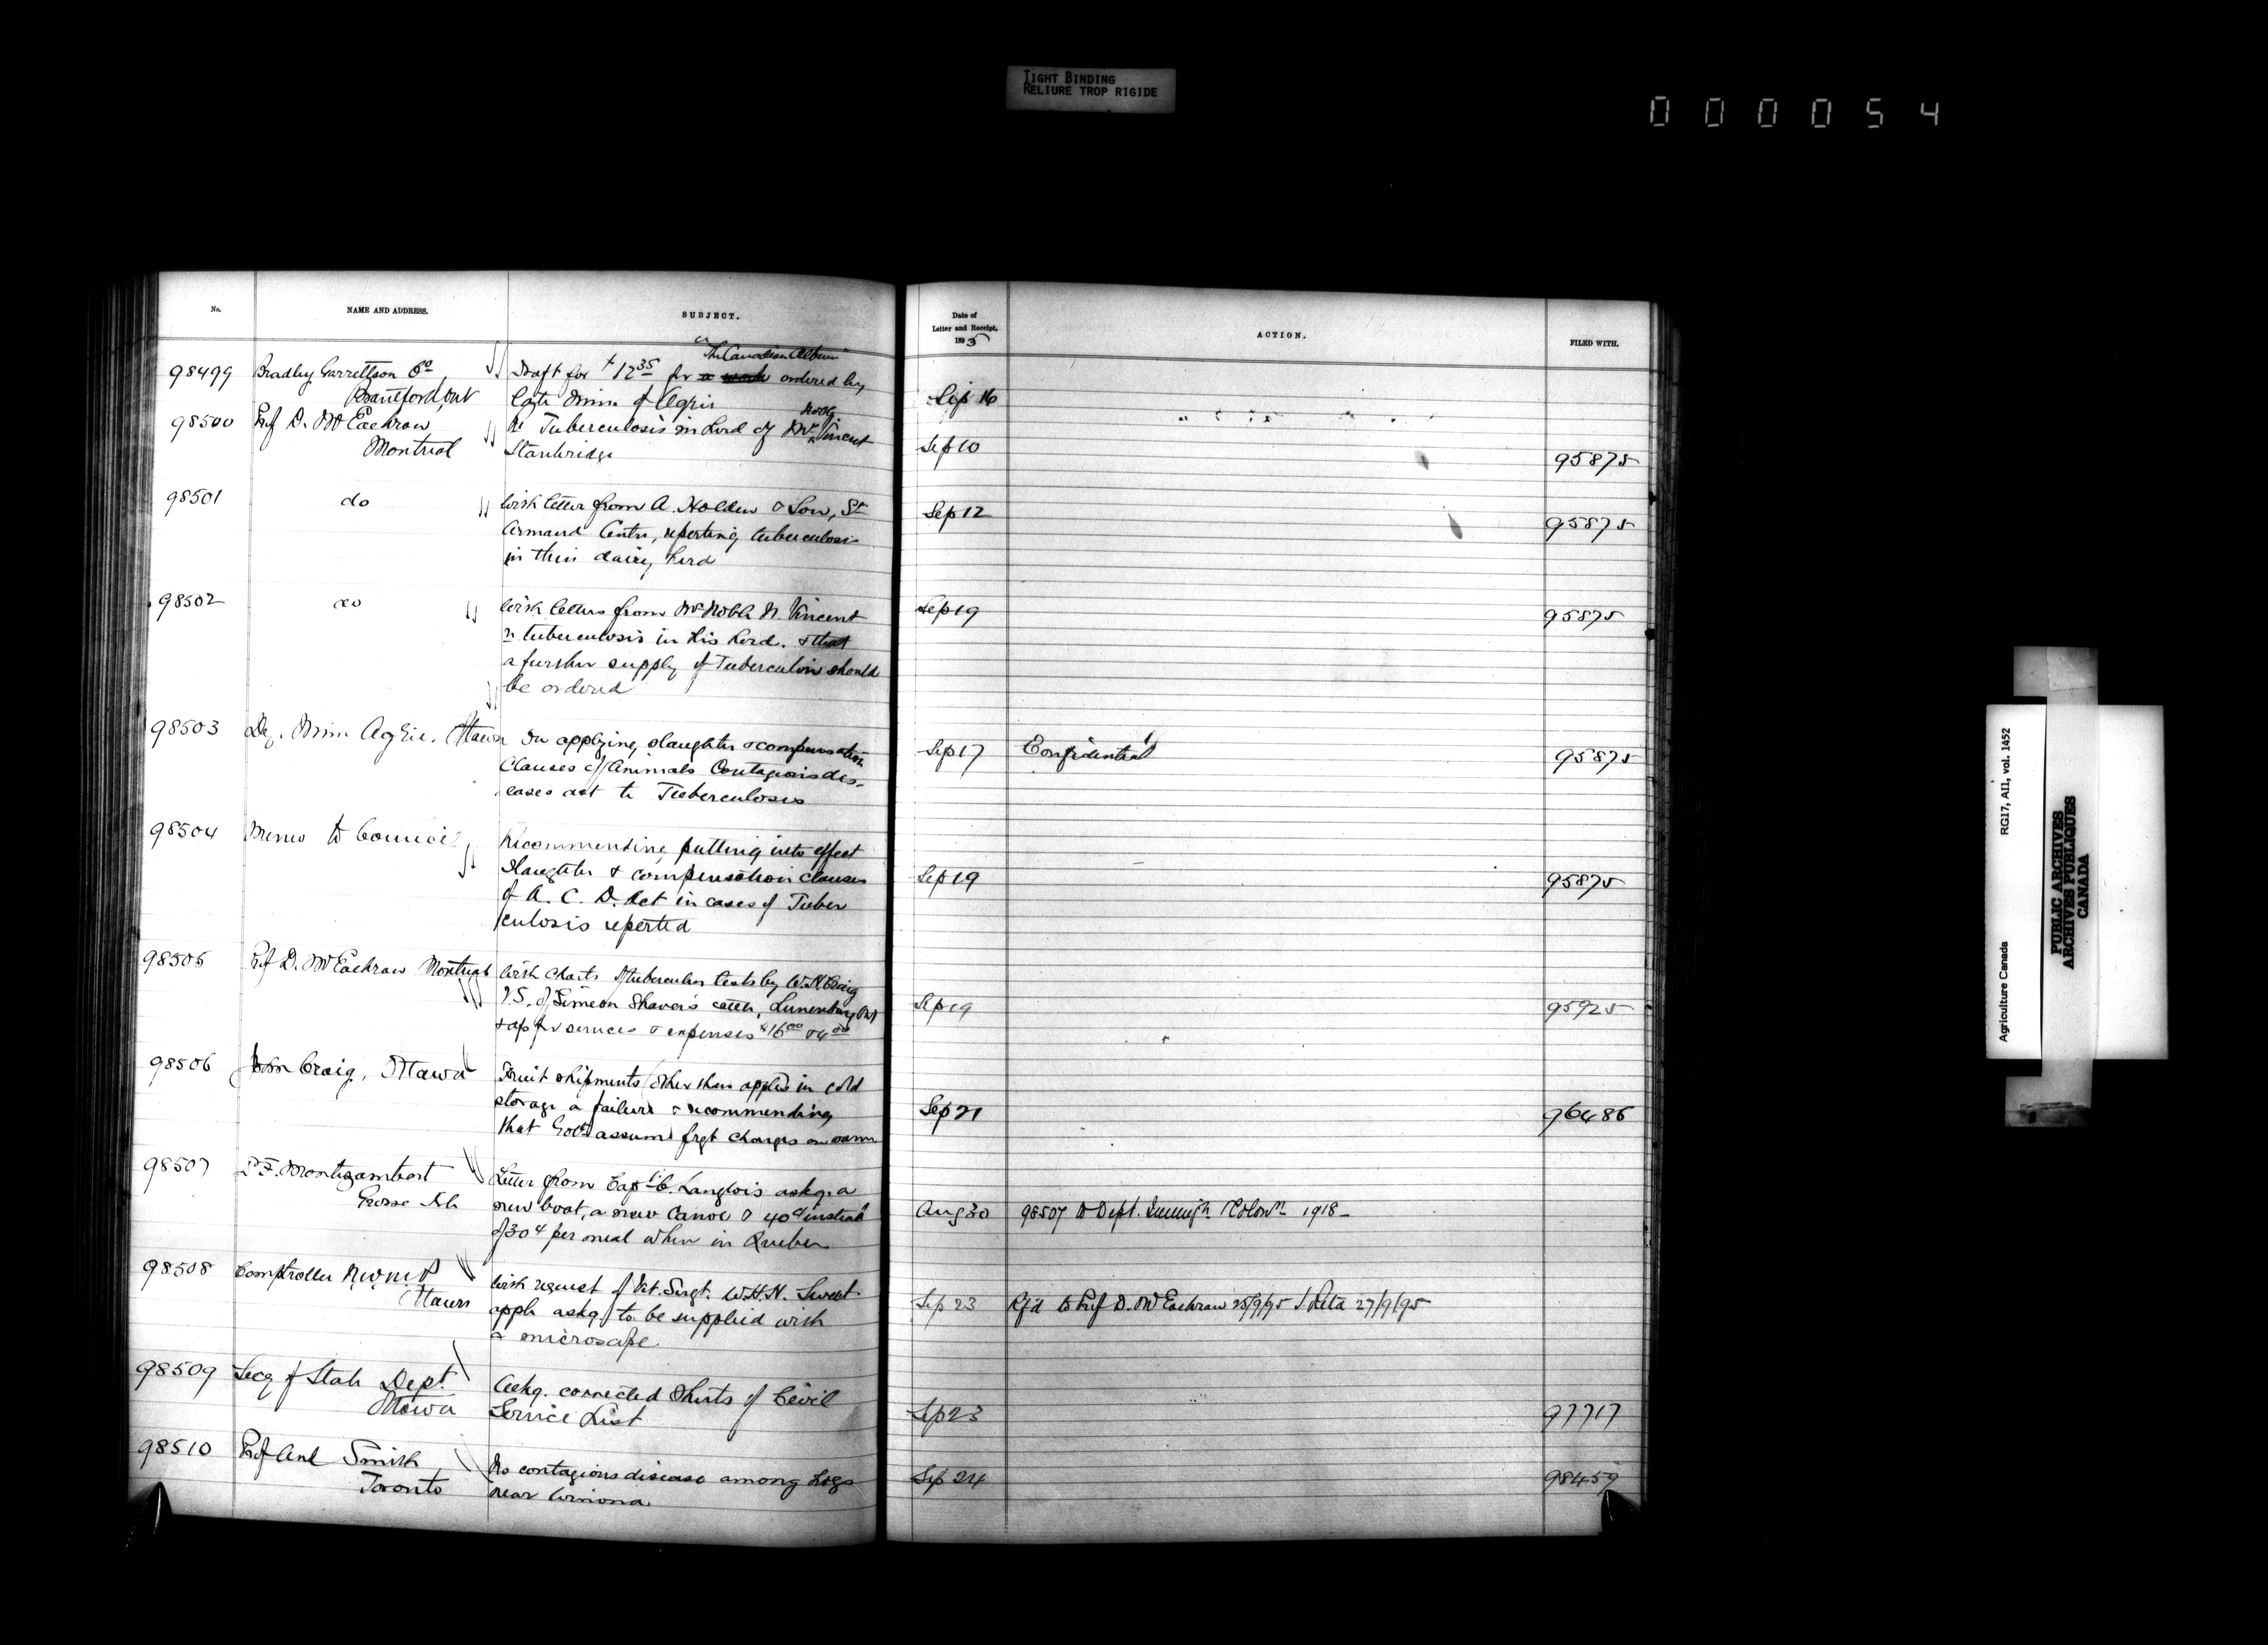 TIGHT BINDING
RELIURE TROP RIGIDE
000054
No.
NAME AND ADDRESS.
SUBJECT.
Date of
Letter and Receipt,
1895
ACTION.
FILED WITH.
98499 Bradley Garrettson Co Draft for $12.35 for a work "The Canadian Album" ordered by
Brantford, Ont late Minr of Agric Sep 16
98500 Prof D. McEachran Re Tuberculosis in herd of Mr Noble Vincent
Montreal Stanbridge Sep 10 95875
98501 do With letter from A. Holden & Son, St Sep 12 95875
Armand Centre, reporting tuberculosis
in their dairy herd
98502 do With letters from Mr Noble N. Vincent Sep 19 95875
re tuberculosis in his herd. & that
a further supply of Tuberculin should
be ordered
98503 Dep. Minr Agric. Ottawa On applying slaughter & compensation Sep 17 Confidential 95875
Clauses of Animals Contagious dis-
eases act to Tuberculosis
98504 Memo to Council Recommending putting into effect
Slaughter & compensation clauses Sep 19 95875
of A. C. D. Act in cases of Tuber
culosis reported
98505 Prof D. McEachran Montreal With charts of tuberculin tests by W. H. Craig
V.S. of Simeon Shaver's cattle, Lunenburg Ont Sep 19 95925
& ap for services & expenses $16.00 & 4.00
98506 John Craig, Ottawa Fruit shipments (other than apples in cold
storage a failure & recommending Sep 21 96486
that Govt assume frgt charges on same
98507 F. Montizambert Letter from Capt C. Langlois askg. a
Grosse Isle new boat, a new Canoe & 40¢ instead Aug 30 98507 to Dept. Immign Colonn 1918-
of 30¢ per meal when in Quebec
98508 Comptroller N W M P With request of Vet. Sergt. W.H.N. Sweet
Ottawa appl askg to be supplied with Sep 23 Rf'd to Prof D. McEachran 25/9/95 Retd 27/9/95
a microscope
98509 Secy of State Dept. Askg. corrected Sheets of Civil
Ottawa Service List Sep 23 97717
98510 Prof And Smith No contagious disease among hogs Sep 24 98459
Toronto near Winona
Agriculture Canada RG17, AII, vol. 1452
PUBLIC ARCHIVES
ARCHIVES PUBLIQUES
CANADA